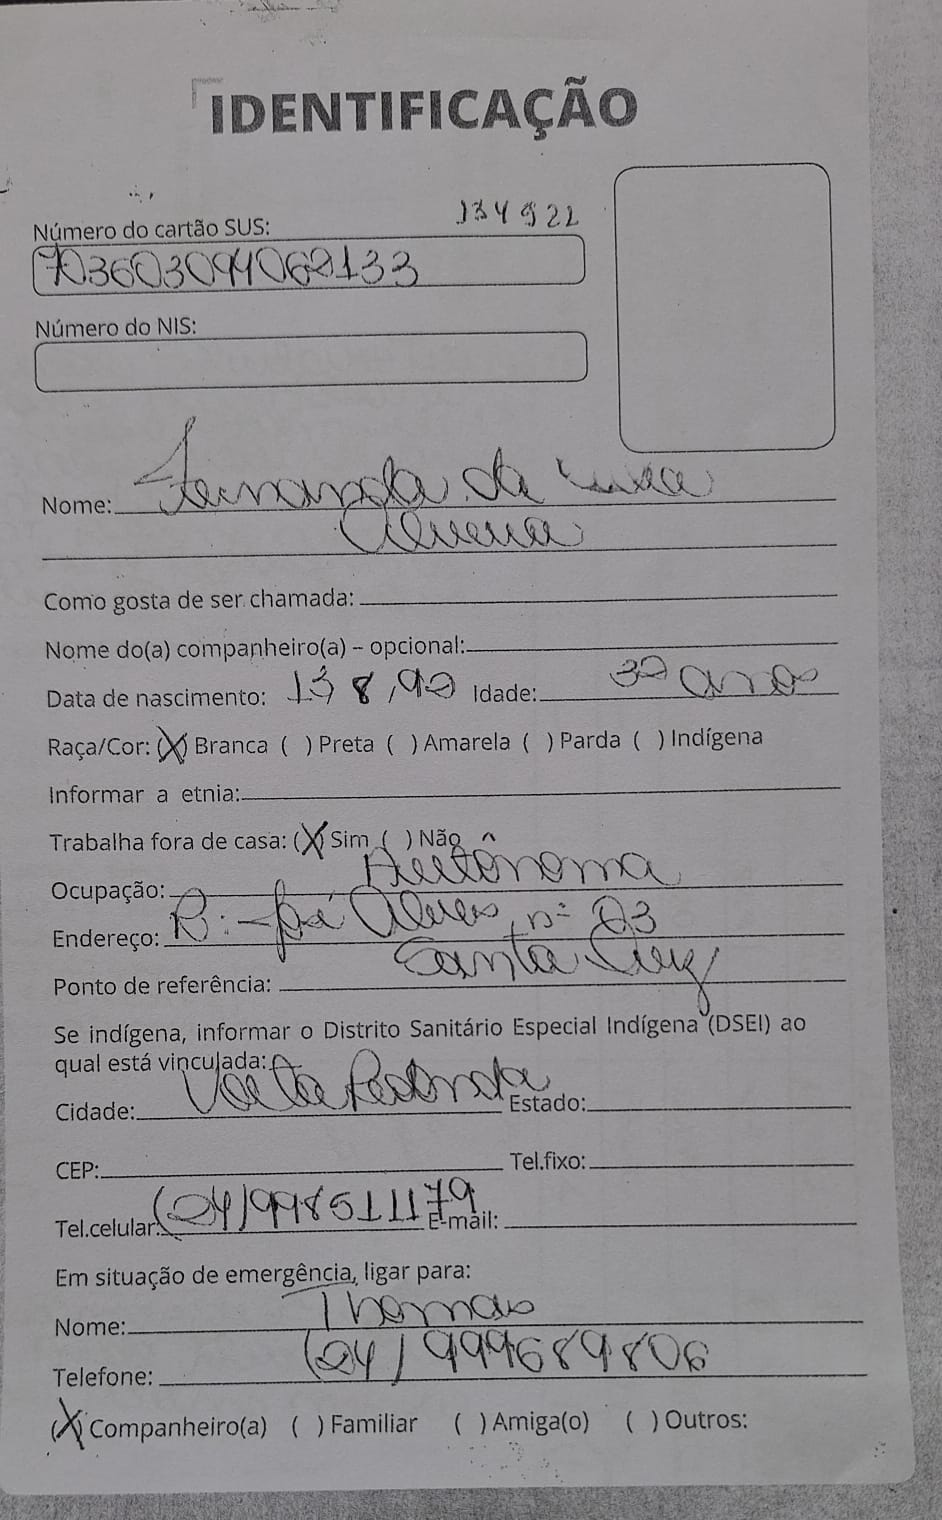 IDENTIFICAÇÃO
134922
Número do cartão SUS:
703603094062133
Número do NIS:
Nome: Fernanda da Silva
Oliveira
Como gosta de ser chamada:
Nome do(a) companheiro(a) - opcional:
Data de nascimento: 13/8/92 Idade: 32 anos
Raça/Cor: (X) Branca ( ) Preta ( ) Amarela ( ) Parda ( ) Indígena
Informar a etnia:
Trabalha fora de casa: (X) Sim ( ) Não
Ocupação: Autônoma
Endereço: R: José Alves, nº 23
Santa Cruz
Ponto de referência:
Se indígena, informar o Distrito Sanitário Especial Indígena (DSEI) ao
qual está vinculada:
Cidade: Volta Redonda Estado:
CEP: Tel.fixo:
Tel.celular: (24) 998511179 E-mail:
Em situação de emergência, ligar para:
Nome: Thomas
Telefone: (24) 999689806
(X) Companheiro(a) ( ) Familiar ( ) Amiga(o) ( ) Outros: